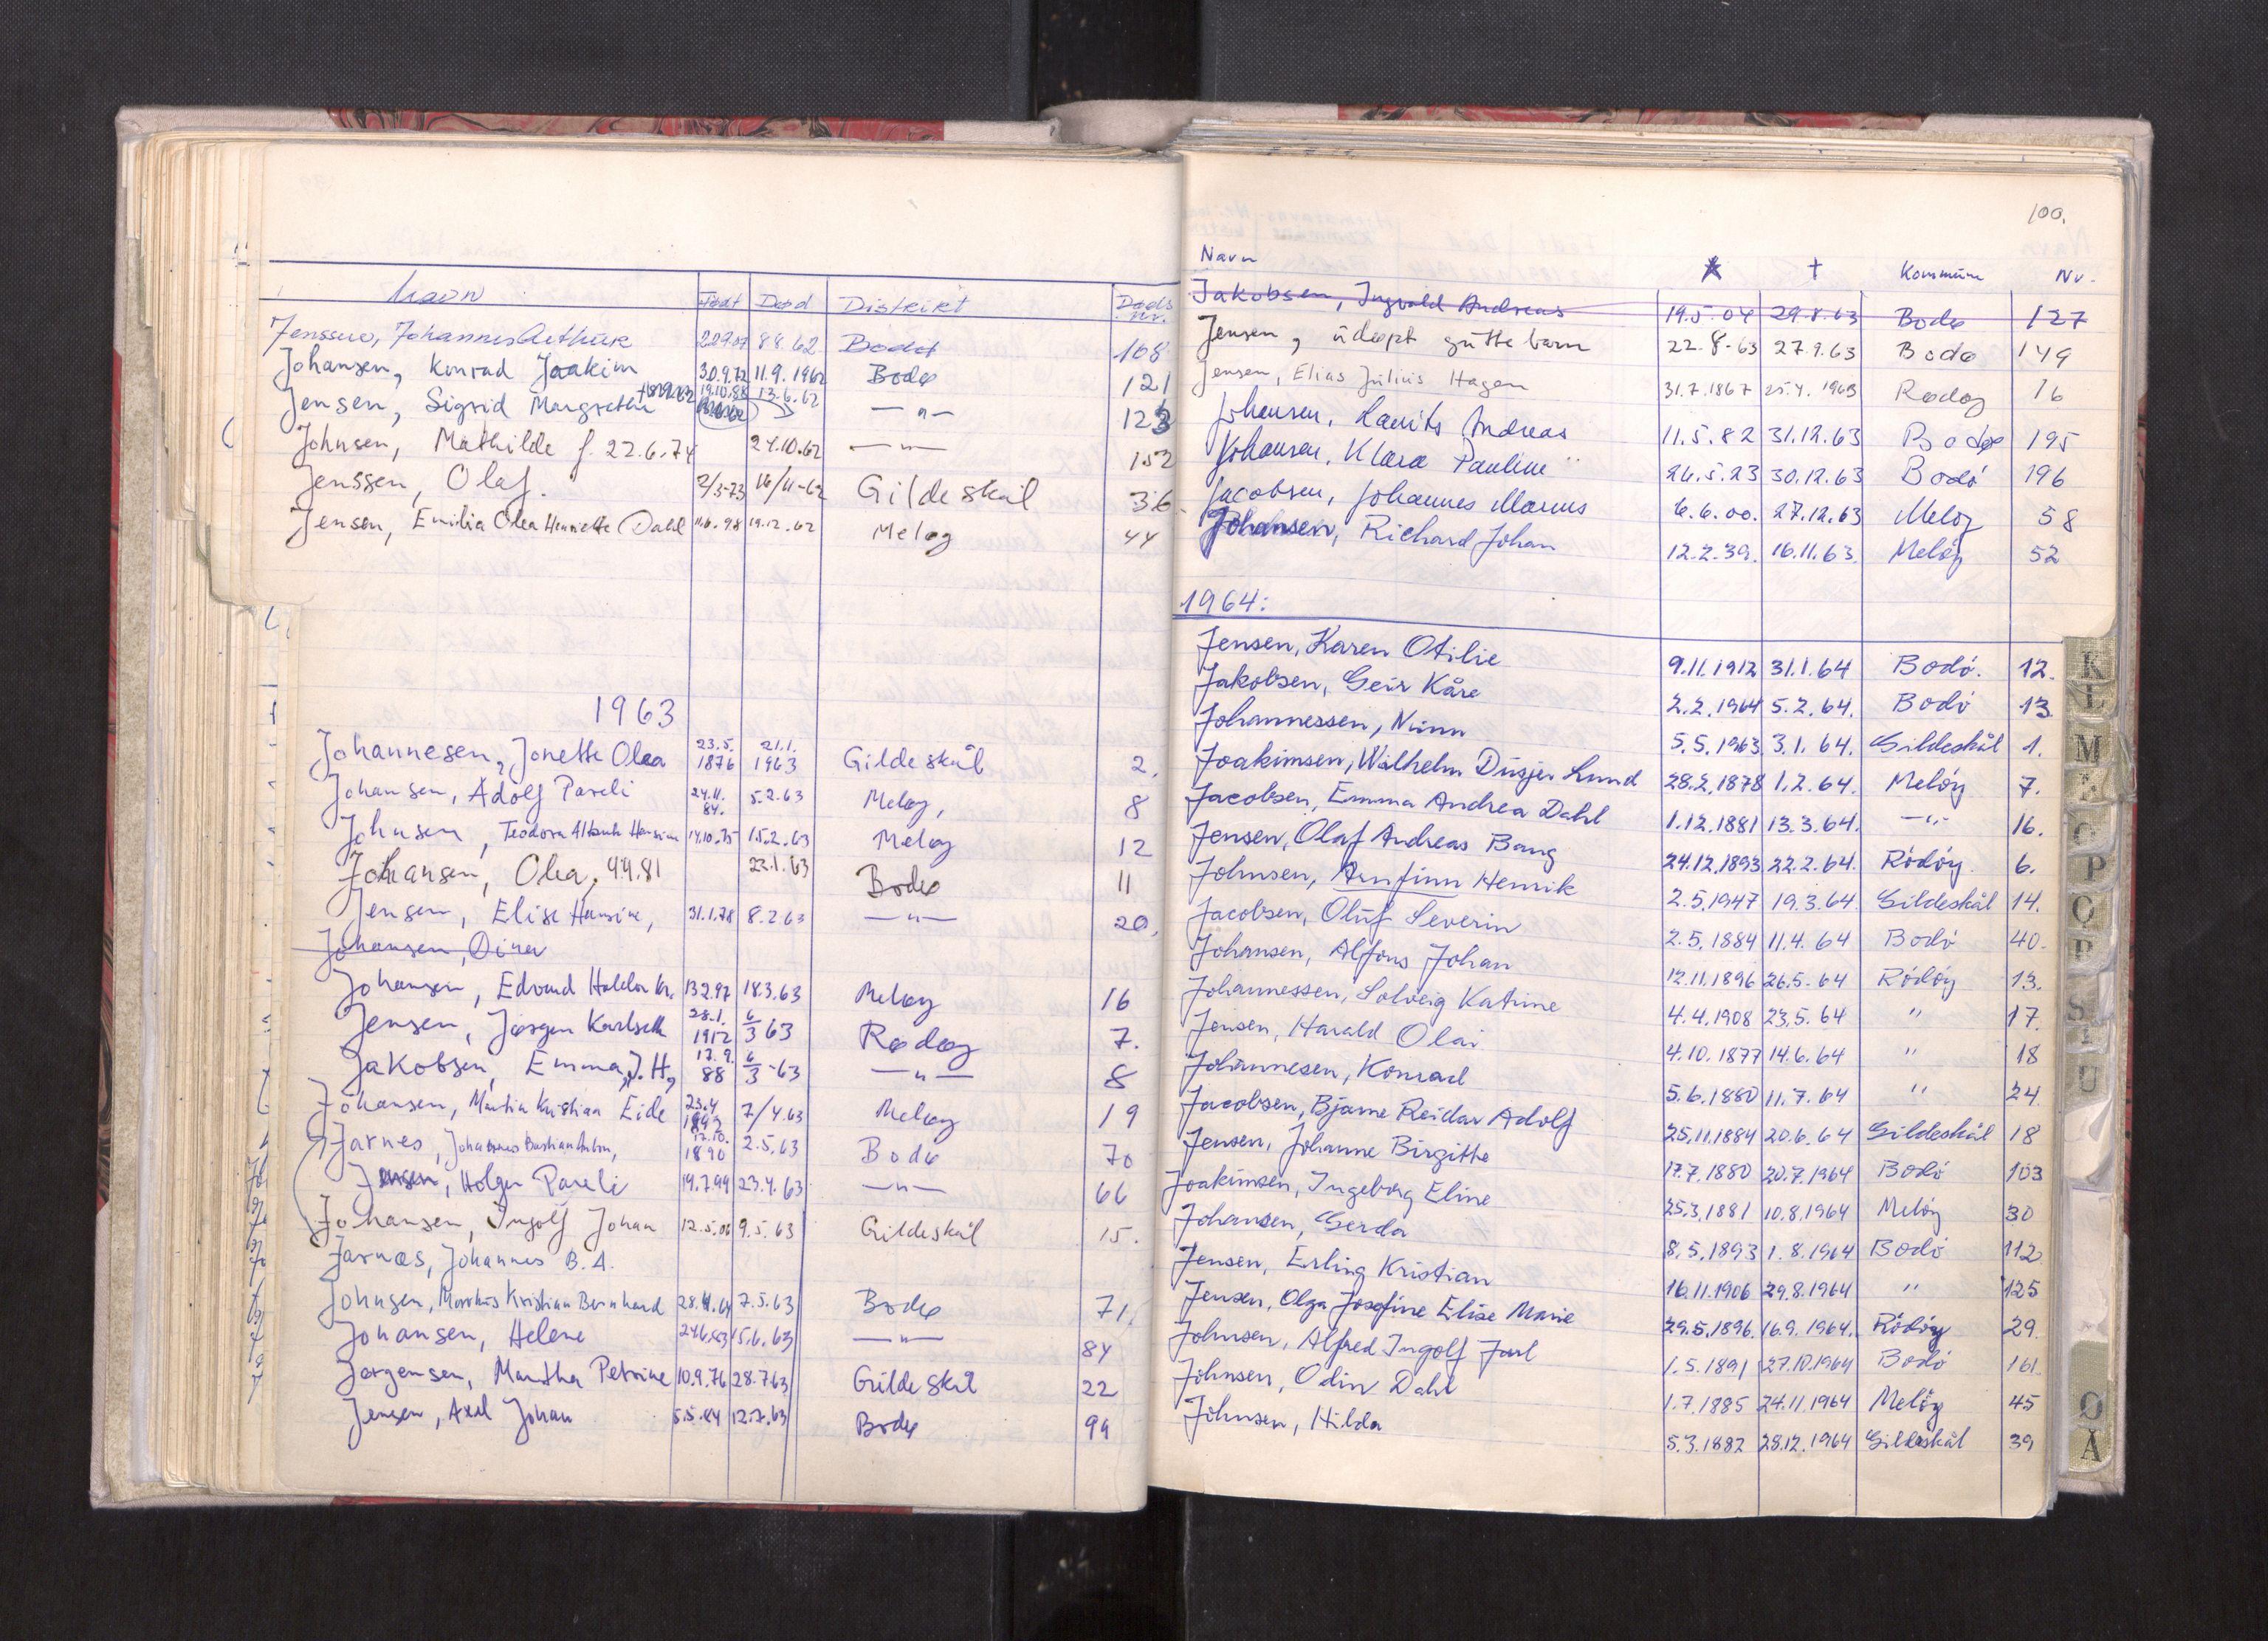 Navn Født Død Distrikt Døds nr.
Jenssen, Johannes Arthur 22907 8 8. 62 Bodø 108
Johansen, Konrad Joakim 30.9.72 11.9. 1962 Bodø 121
Jensen, Sigrid Margrethe 19.10.88 13.6.62 —"— 123
Johnsen, Mathilde f. 22.6.74 24.10.62 —"— 152
Jenssen, Olaf. 2/3-73 16/11-62 Gildeskål 36
Jensen, Emilia Olea Henriette Dahl 11.6.98 19.12.62 Meløy 44
1963
Johannesen, Jonette Olea 23.5. 1876 21.1. 1963 Gildeskål 2.
Johansen, Adolf Pareli 24.11. 84. 5.2.63 Meløy, 8
Johnsen, Teodora 14.10.75 15.2.63 Meløy 12
Johansen, Olea, 4.4.81 22.1.63 Bodø 11
Jensen, Elise Hansine, 31.1.78 8.2.63 —"— 20.
Johansen, Dina
Johansen, Edvard Haldor Kr. 13297 18.3.63 Meløy 16
Jensen, Jørgen Karlseth 28.1. 1912 6/3 63 Rødøy 7.
Jakobsen, Emma, J. H, 17.9. 88 6/3-63 —"— 8
Johansen, Martin Kristian Eide 23.4 1893 7/4.63 Meløy 19
Jarnes, Johannes Bastian Anton, 17.10. 1890 2.5.63 Bodø 70
Jensen, Holger Pareli 19.7.99 23.4.63 —"— 66
Johansen, Ingolf Johan 12.5.06 9.5.63 Gildeskål 15.
Jarnæs, Johannes B. A.
Johnsen, Markus Kristian Bernhard 7.5.63 Bodø 71.
Johansen, Helene 24.6.83 15.6.63 —"— 84
Jørgensen, Martha Petrine 10.9.76 28.7.63 Gildeskål 22
Jensen, Axel Johan 5.5.84 12.7.63 Bodø 99
100.
Navn * † Kommune Nr.
Jakobsen, Ingvald Andreas 19.5.04 29.8.63 Bodø 127
Jensen, udøpt guttebarn 22.8-63 27.9.63 Bodø 149
Jensen, Elias Julius Hagen 31.7.1867 25.4.1963 Rødøy 16
Johansen, Lauits Andreas 11.5.82 31.12.63 Bodø 195
Johansen, Klara Pauline 26.5.23 30.12.63 Bodø 196
Jacobsen, Johannes Marius 6.6.00. 27.12.63 Meløy 58
Johansen, Richard Johan 12.2.39. 16.11.63. Meløy 52
1964:
Jensen, Karen Otilie 9.11.1912 31.1.64 Bodø. 12.
Jakobsen, Geir Kåre 2.2.1964 5.2.64. Bodø 13
Johannessen, Ninn 5.5.1963 3.1.64. Gildeskål 1.
Joakimsen, Wilhelm Dusjer Lund 28.2.1878 1.2.64. Meløy 7.
Jacobsen, Emma Andrea Dahl 1.12.1881 13.3.64. —"— 16.
Jensen, Olaf Andreas Bang 24.12.1893 22.2.64. Rødøy 6.
Johnsen, Arnfinn Henrik 2.5.1947 19.3.64 Gildeskål 14.
Jacobsen, Oluf Severin 2.5.1884 11.4.64 Bodø 40.
Johansen, Alfons Johan 12.11.1896 26.5.64 Rødøy 13.
Johannessen, Solveig Katrine 4.4.1908 23.5.64 " 17.
Jensen, Harald Olai 4.10.1877 14.6.64 " 18
Johannesen, Konrad 5.6.1880 11.7.64 " 24
Jacobsen, Bjarne Reidar Adolf 25.11.1884 20.6.64 Gildeskål 18
Jensen, Johanne Birgitte 17.7.1880 20.7.1964 Bodø 103
Joakimsen, Ingeborg Eline 25.3.1881 10.8.1964 Meløy 30
Johansen, Gerda 8.5.1893 1.8.1964 Bodø 112
Jensen, Erling Kristian 16.11.1906 29.8.1964 " 125
Jensen, Olga Josefine Elise Marie 29.5.1896 16.9.1964. Rødøy 29.
Johnsen, Alfred Ingolf Jarl 1.5.1891 27.10.1964 Bodø 161
Johnsen, Odin Dahl 1.7.1885 24.11.1964 Meløy 45
Johnsen, Hilda 5.3.1882 28.12.1964 Gildeskål 39
K
L
M
O
P
Q
R
S
T
U
Ø
Å